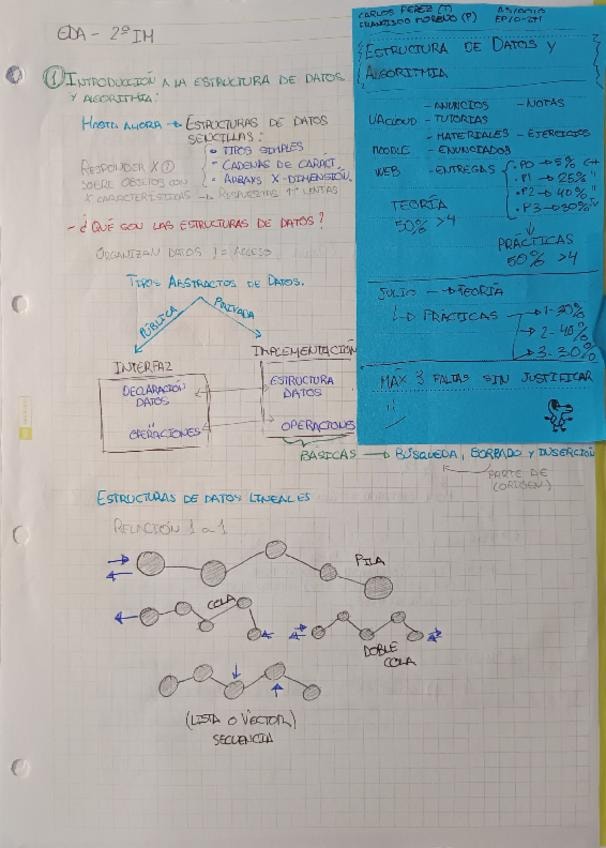 EDA - 2º IM
① INTRODUCCIÓN A LA ESTRUCTURA DE DATOS
Y ALGORITMIA:
HASTA AHORA → ESTRUCTURAS DE DATOS
SENCILLAS:
TIPOS SIMPLES
- CADENAS DE CARÁCT.
ARRAYS X-DIMENSIÓN.
RESPONDER X ①
SOBRE OBJETOS CON
X CARACTERÍSTICAS → RESPUESTAS LENTAS
- ¿QUÉ SON LAS ESTRUCTURAS DE DATOS?
ORGANIZAN DATOS != ACCESO
TIPOS ABSTRACTOS DE DATOS.
PÚBLICA
PRIVADA
INTERFAZ
IMPLEMENTACIÓN
DECLARACIÓN
DATOS
OPERACIONES
ESTRUCTURA
DATOS
OPERACIONES
BÁSICAS → BÚSQUEDA, BORRADO Y INSERCIÓN
PARTE DE
(ORIGEN)
ESTRUCTURAS DE DATOS LINEALES
RELACIÓN 1 a 1
PILA
COLA
DOBLE
COLA
(LISTA O VECTOR)
SECUENCIA
CARLOS PÉREZ (T)
FRANCISCO MORENO (P)
EP/0-2M
ESTRUCTURA DE DATOS Y
ALGORITMIA
- ANUNCIOS - NOTAS
UACLOUD - TUTORÍAS
- MATERIALES - EJERCICIOS
MOODLE - ENUNCIADOS
WEB - ENTREGAS
· P0 → 5% C++
· P1 → 25% "
· P2 → 40% "
· P3 → 30%
TEORÍA
50% >4
PRÁCTICAS
50% >4
JULIO → TEORÍA
→ PRÁCTICAS
→ 1-30%
→ 2-40%
→ 3-30%
MÁX 3 FALTAS SIN JUSTIFICAR